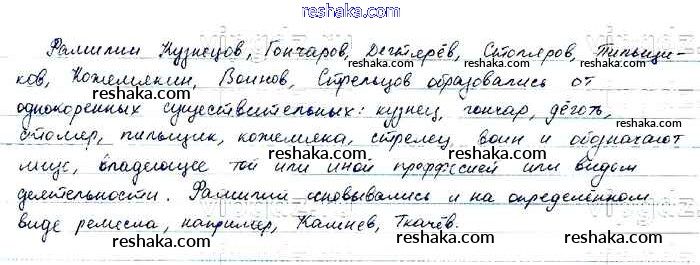 reshaka.com
Фамилии Кузнецов, Гончаров, Дегтярёв, Столяров, Пильщи-
ков, Кожемякин, Воинов, Стрельцов образовались от
однокоренных существительных: кузнец, гончар, дёготь,
столяр, пильщик, кожемяка, стрелец, воин и обозначают
лицо, владеющее той или иной профессией или видом
деятельности. Фамилии основывались и на определённом
виде ремесла, например, Калинев, Ткачёв.
reshaka.com
reshaka.com
reshaka.com
reshaka.com
reshaka.com
reshaka.com
reshaka.com
reshaka.com
reshaka.com
reshaka.com
reshaka.com